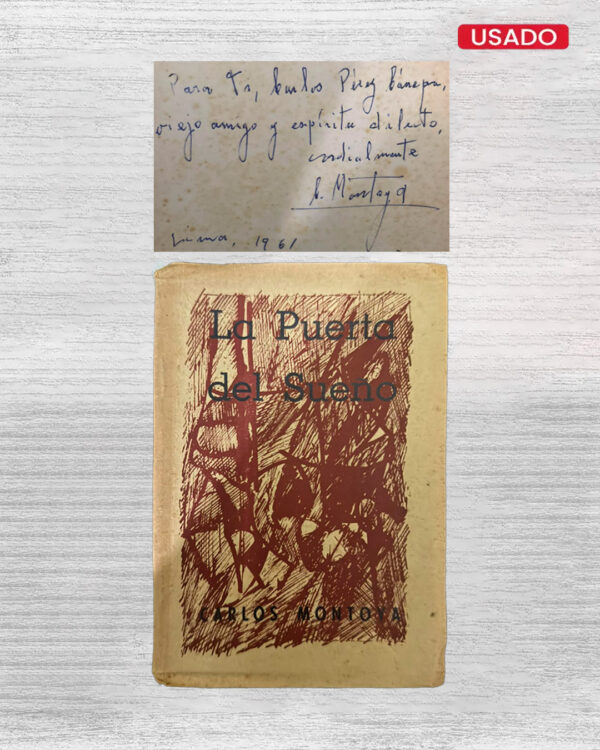 USADO
Para Ti, Carlos Pérez Cánepa,
viejo amigo y espíritu dilecto,
cordialmente
C. Montoya
Lima, 1961
La Puerta
del Sueño
CARLOS MONTOYA